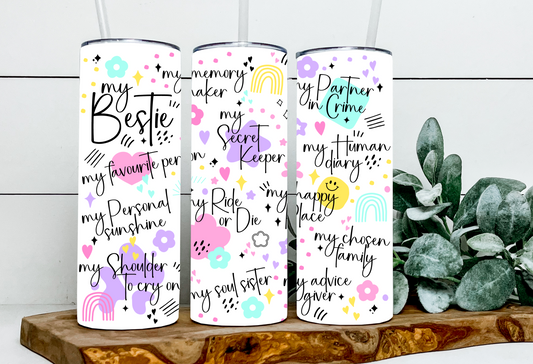 my
Bestie
my favourite per
my Personal
sunshine
my Shoulder
to cry on
my memory
maker
my
Secret
Keeper
on
my Ride
or Die
my soul sister
my Partner
in Crime
my Human
diary
my happy
place
my chosen
family
my advice
giver